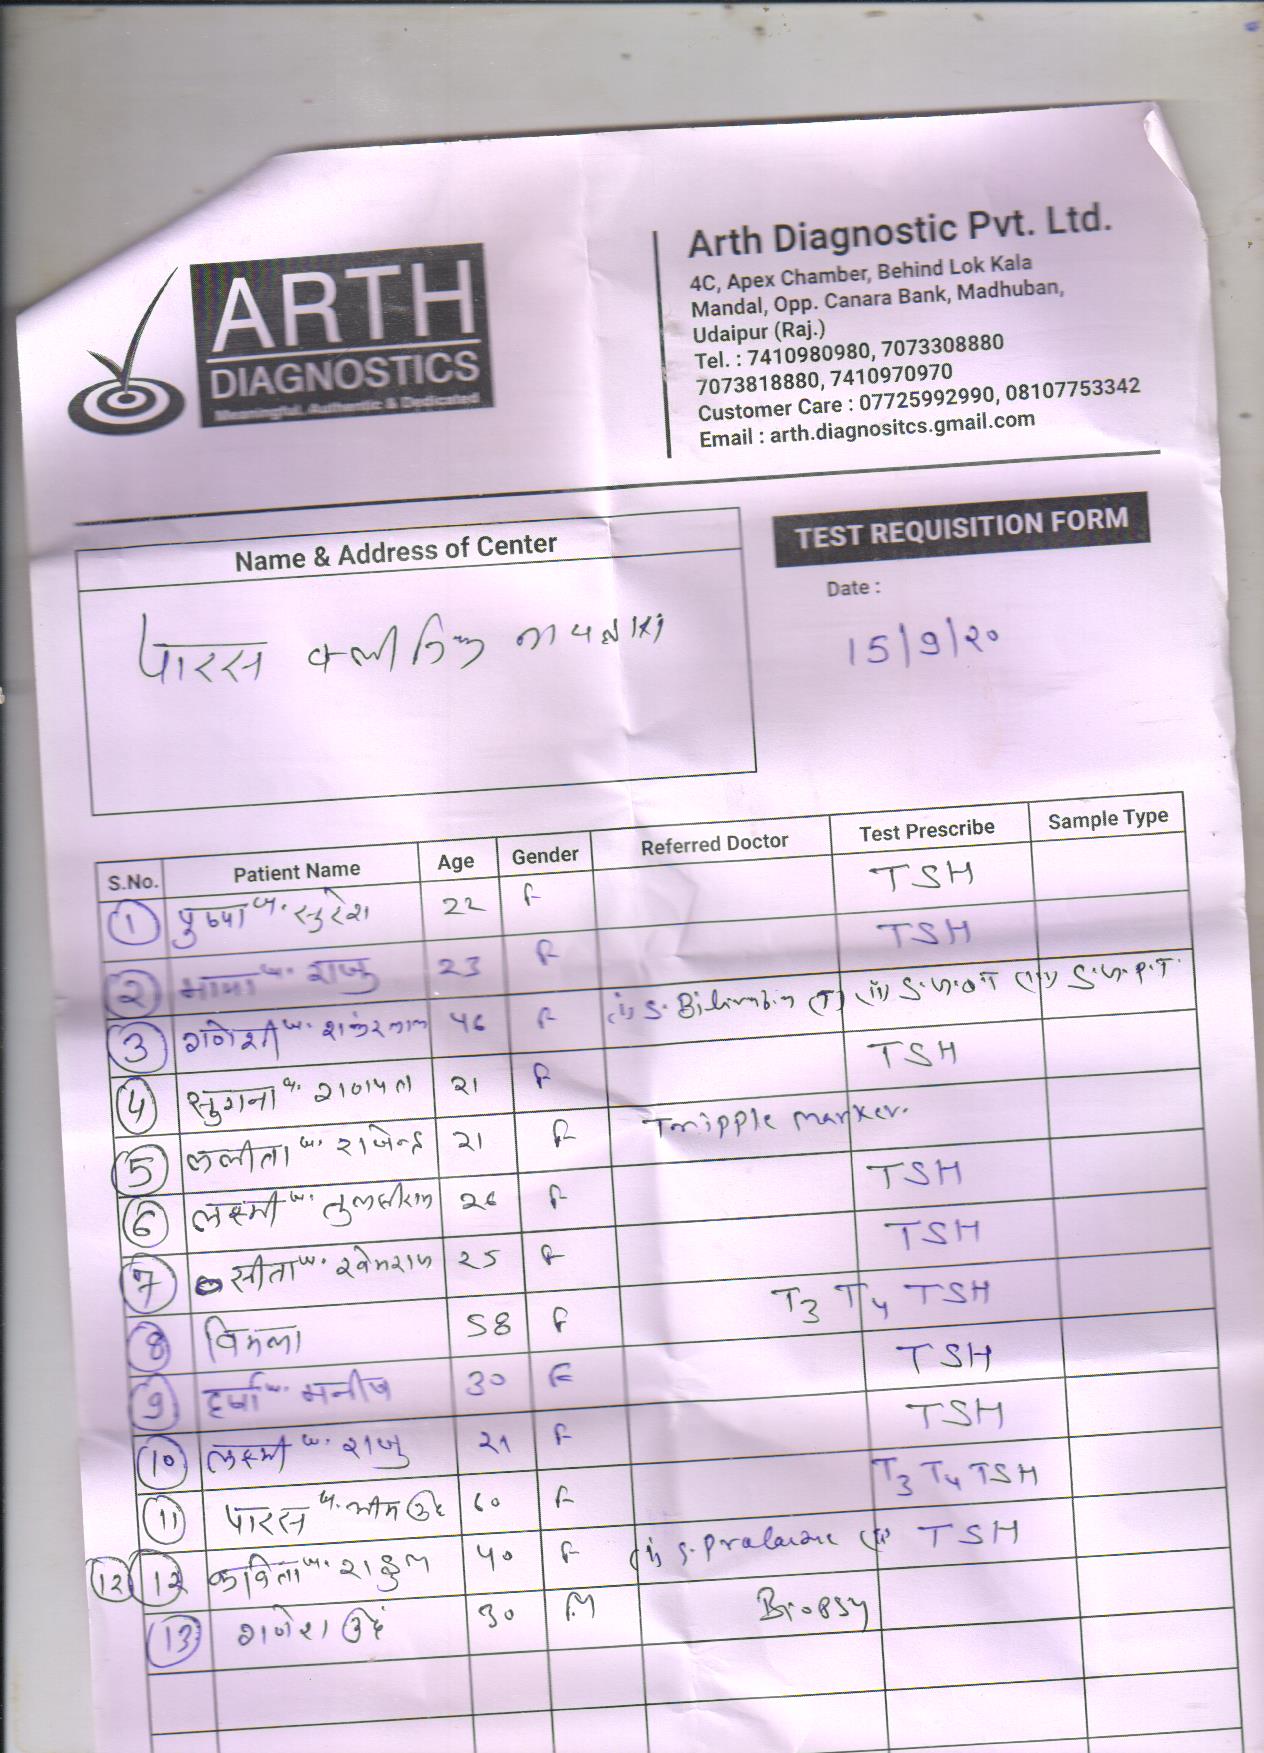 ARTH
DIAGNOSTICS
Meaningful, Authentic & Dedicated
Arth Diagnostic Pvt. Ltd.
4C, Apex Chamber, Behind Lok Kala
Mandal, Opp. Canara Bank, Madhuban,
Udaipur (Raj.)
Tel. : 7410980980, 7073308880
7073818880, 7410970970
Customer Care : 07725992990, 08107753342
Email : arth.diagnositcs.gmail.com
Name & Address of Center
TEST REQUISITION FORM
Date :
पारस क्लीनिक
15/9/20
S.No. Patient Name Age Gender Referred Doctor Test Prescribe Sample Type
1 पुष्पा w. सुरेश 22 F TSH
2 w. राजु 23 F TSH
3 गणेशी w. शंकरलाल 46 F (i) S. Bilirubin (T) (ii) S.G.O.T (iii) S.G.P.T.
4 सुगना w. गणपत 21 F TSH
5 ललीता w. राजेन्द्र 21 F Tripple marker.
6 लक्ष्मी w. तुलसीराम 26 F TSH
7 सीता w. खेमराज 25 F TSH
8 विमला 58 F T3 T4 TSH
9 हर्षा w. मनीष 30 F TSH
10 लक्ष्मी w. राजु 21 F TSH
11 पारस w. भीम सिंह 60 F T3 T4 TSH
12 12 कविता w. राहुल 40 F (i) (ii) TSH
13 गणेश सिंह 30 M Biopsy